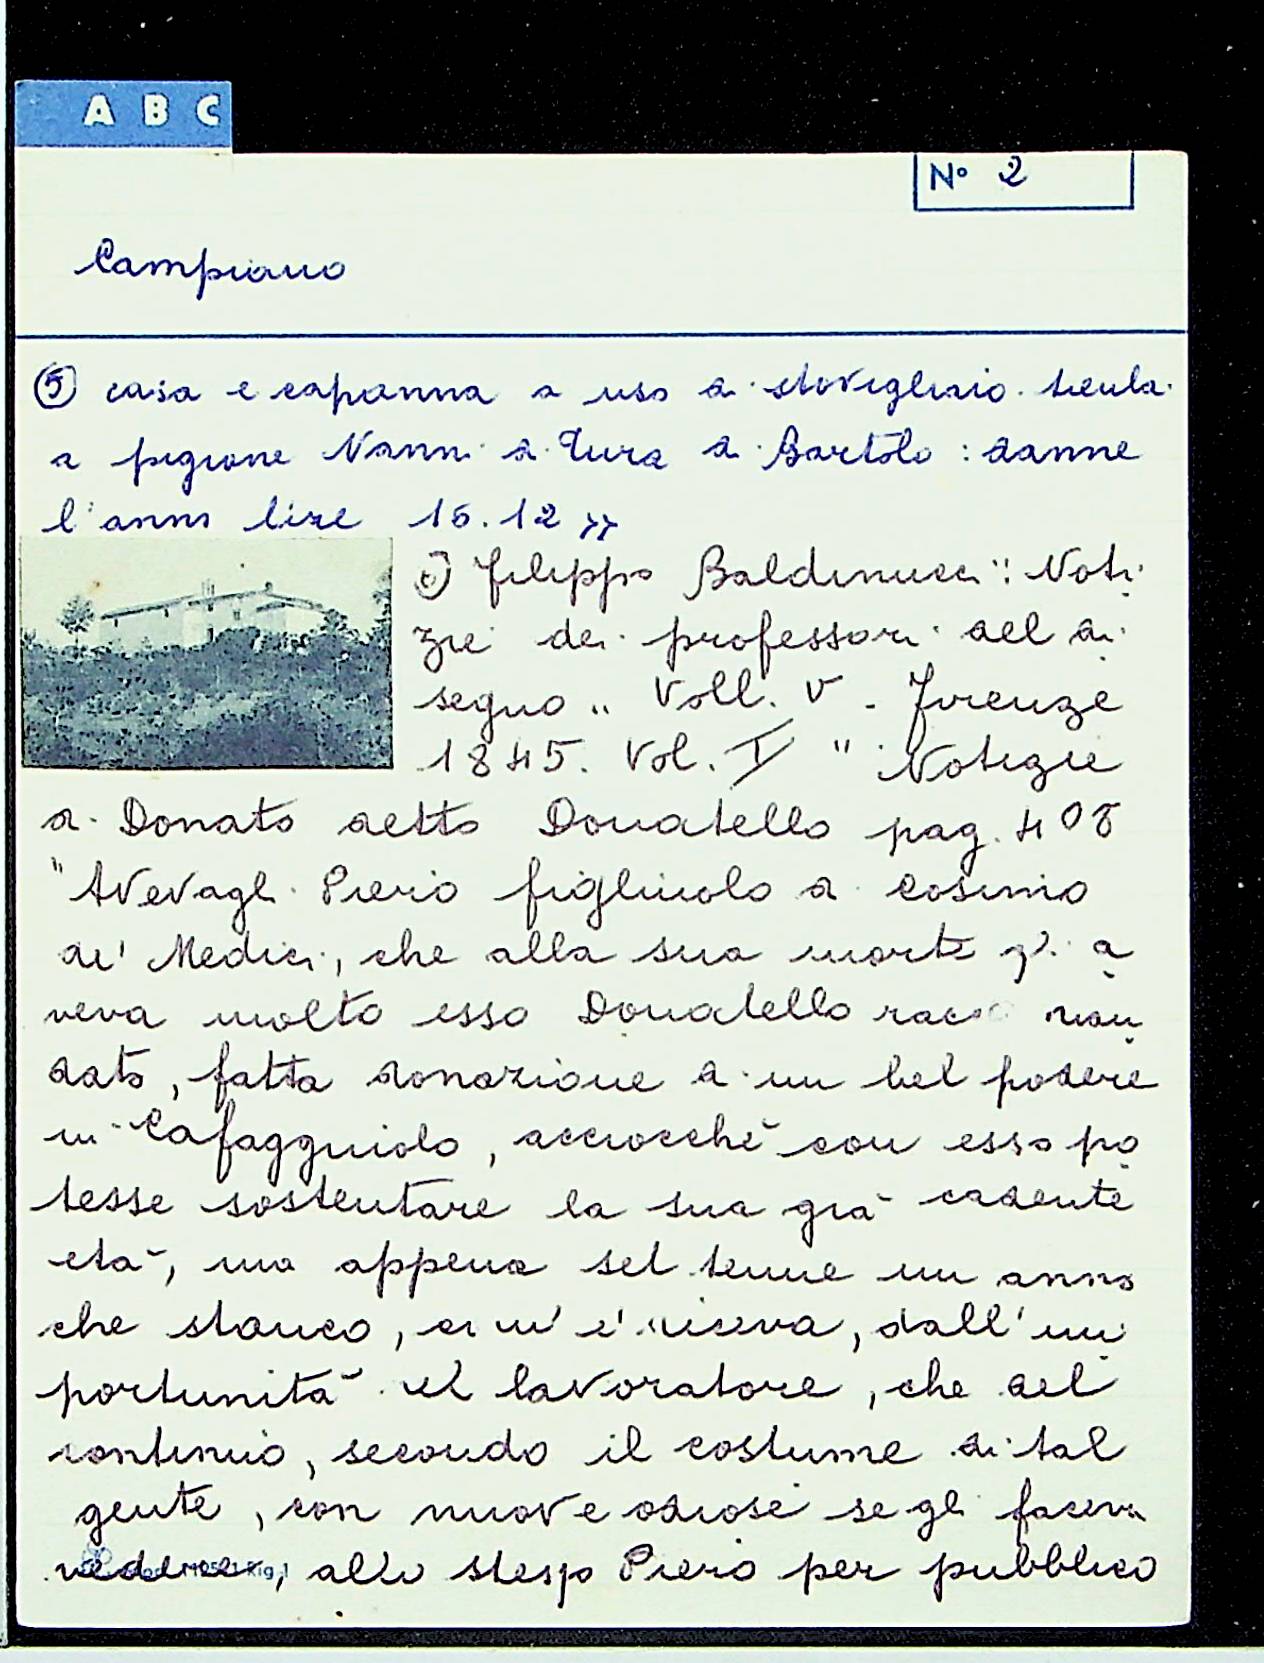 A B C
N° 2
Campiano
⑤ casa e capanna a uso di stovigliaio tienla
a pigione Nanni di Tura di Bartolo : danne
l'anno lire 16.12 »
6) Filippo Baldinucci " Noti
zie dei professori del di
segno " Voll. V - Firenze
1845. Vol. I " Notizie
di Donato detto Donatello pag. 408
" Avevagli Piero figliuolo di Cosimo
de' Medici, che alla sua morte gli a
veva molto esso Donatello man
dato, fatta donazione di un bel podere
in Cafaggiuolo, acciocchè con esso po
tesse sostentare la sua già cadente
età, ma appena sel tenne un anno
che stanco, dall' im
portunità lavoratore, che del
continuo, secondo il costume di tal
gente, con nuove odiose se gli faceva
vedere, allo stesso Piero per pubblico